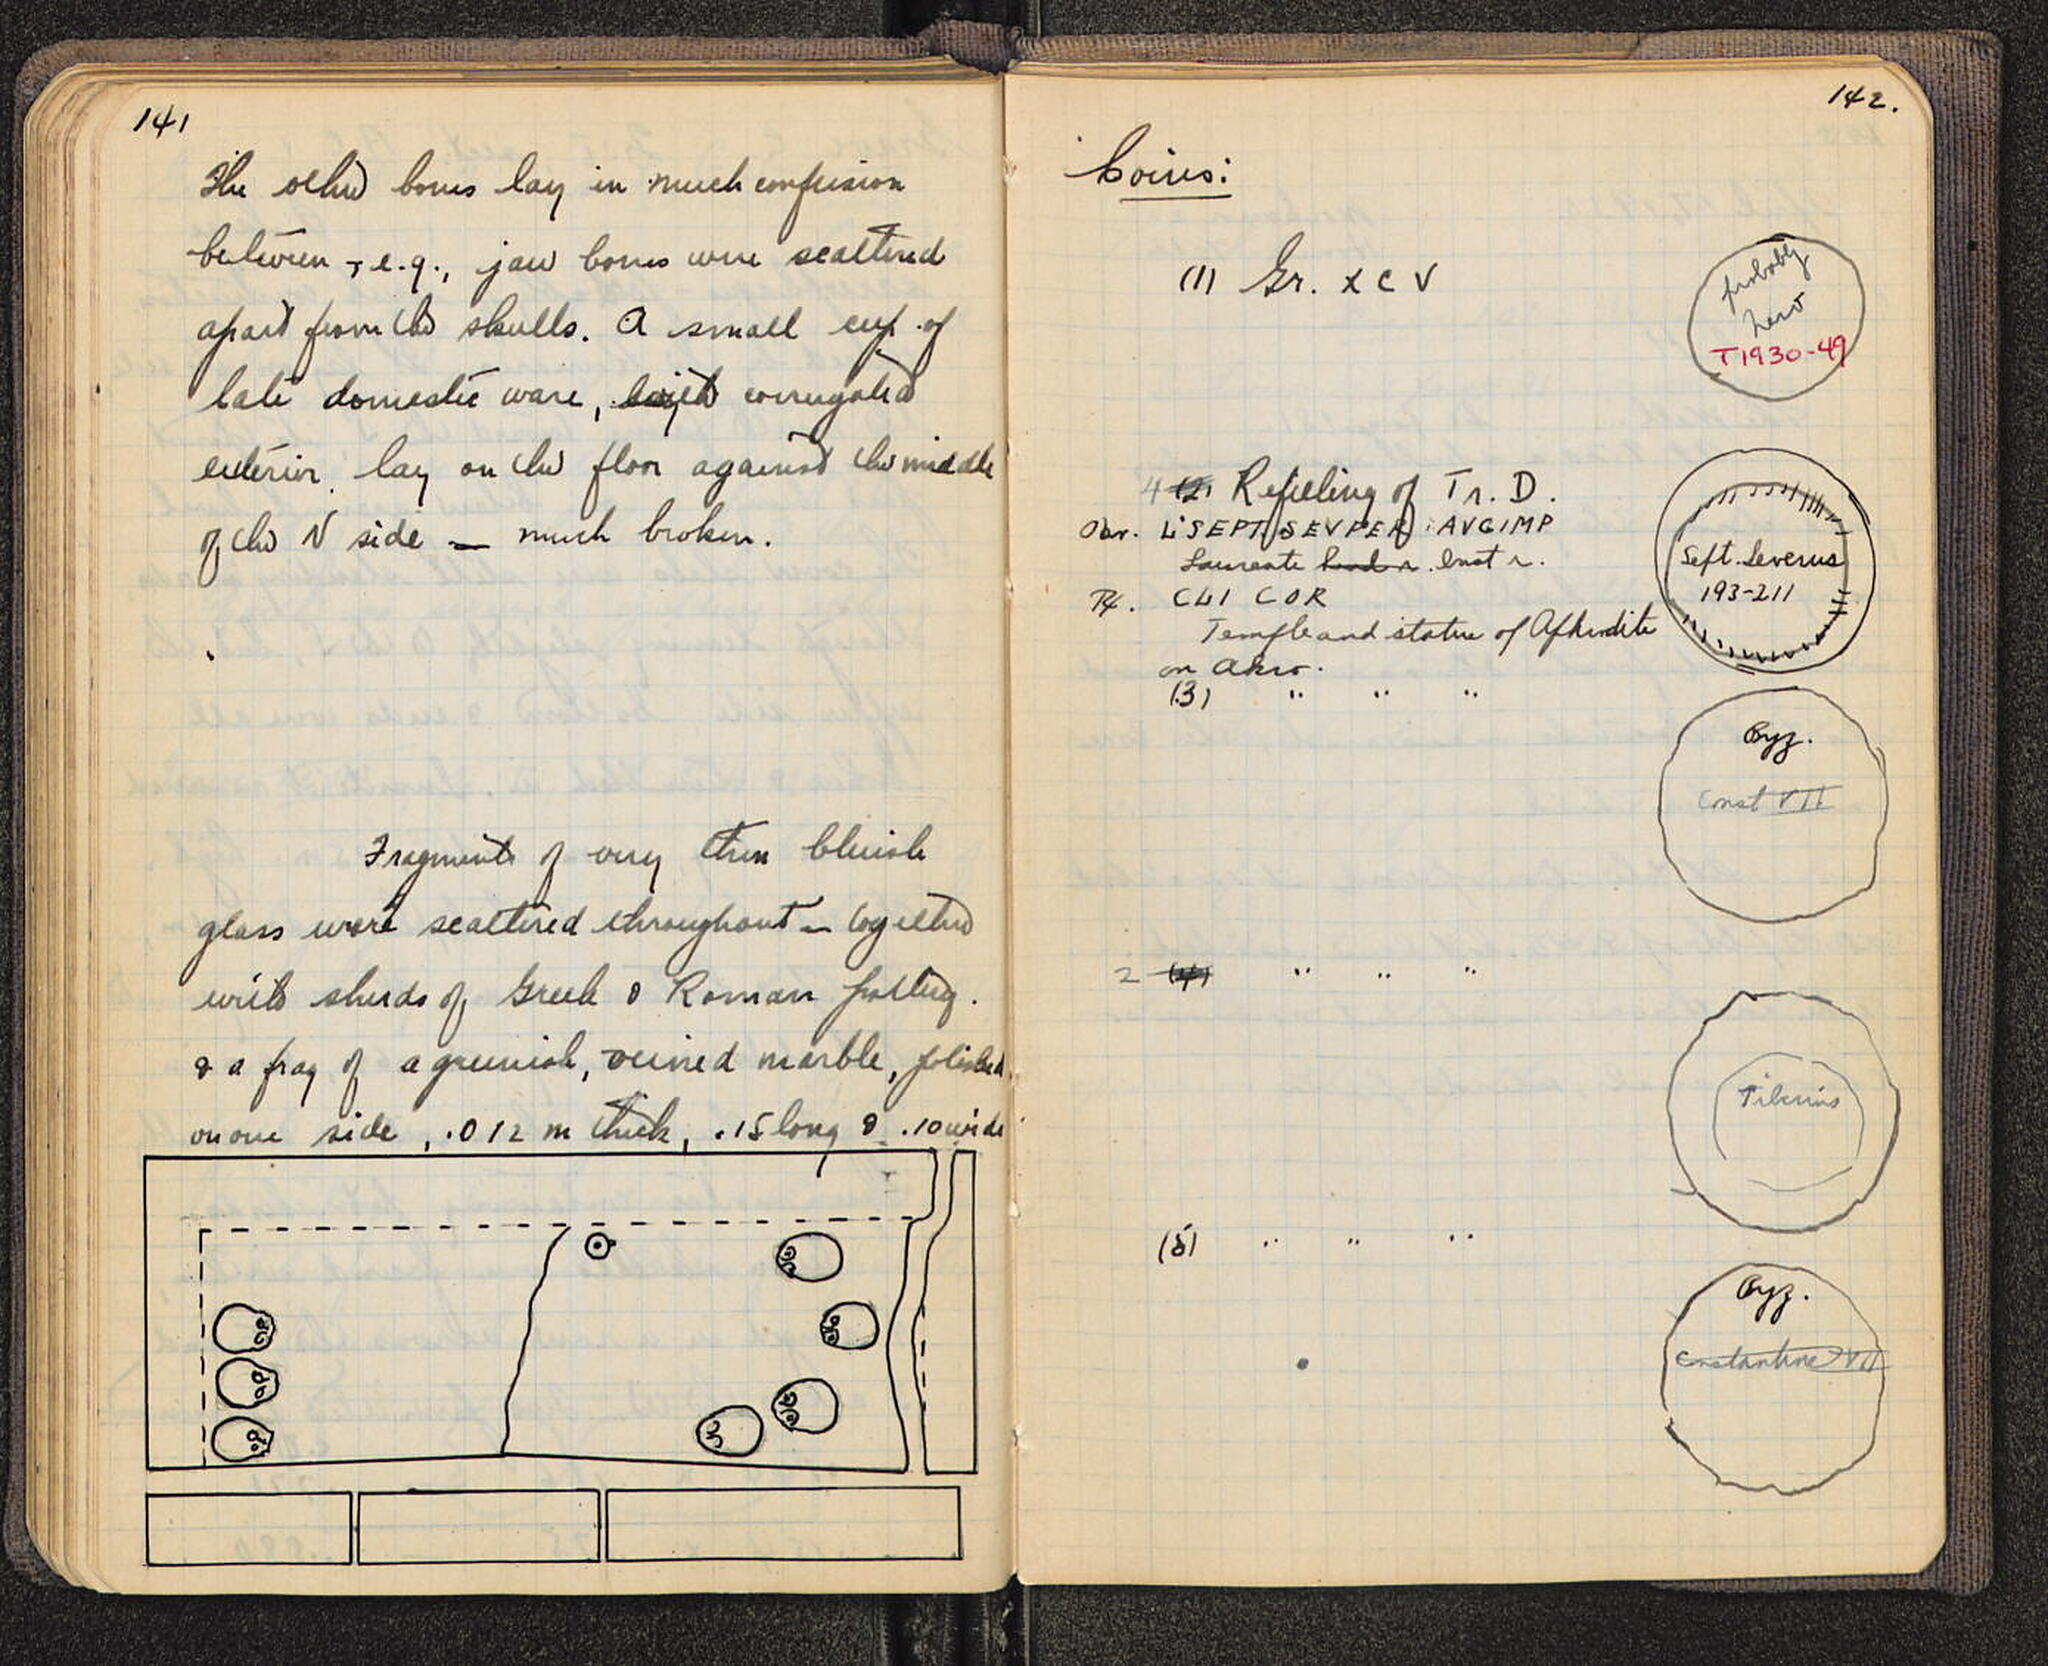 141
The other bones lay in much confusion
between, e.g., jaw bones were scattered
apart from the skulls. A small cup of
late domestic ware, with corrugated
exterior, lay on the floor against the middle
of the N side — much broken.
Fragments of very thin bluish
glass were scattered throughout — together
with sherds of Greek & Roman pottery.
& a frag of a greenish, veined marble, polished
on one side, .012 m thick, .15 long & .10 wide
142.
Coins:
(1) Gr. XCV
probably
Nero
T1930-49
4 (2) Refilling of Tr. D.
Obv. L SEPT SEVPER AVGIMP
Laureate head r. bust r.
Rx. CLI COR
Temple and statue of Aphrodite
on Akro.
Sept. Severus
193-211
(3) " " "
Byz.
Const VII
2 (4) " " "
Tiberius
(5) " " "
Byz.
Constantine VII